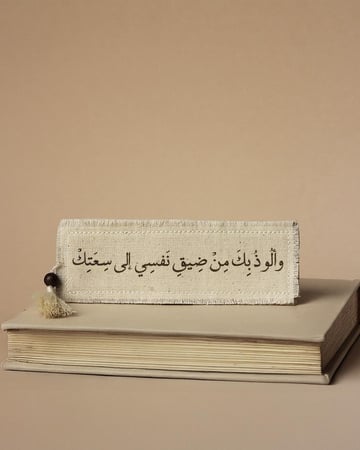 وألُوذُ بِكَ مِنْ ضِيقِ نَفسِي إلى سِعَتِكْ